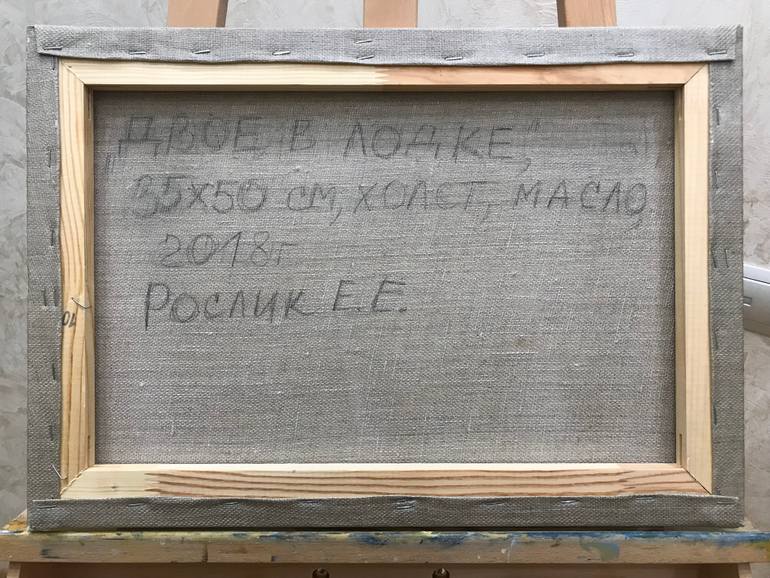 „ДВОЕ В ЛОДКЕ",
35х50 см, ХОЛСТ, МАСЛО,
2018г
РОСЛИК Е.Е.
10